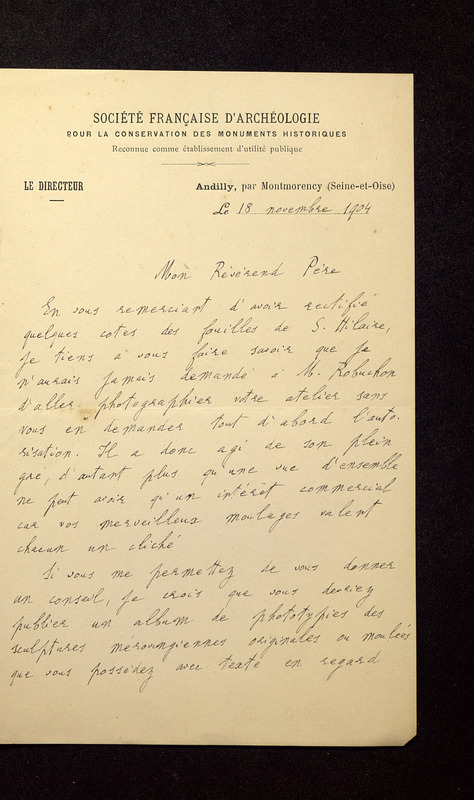 SOCIÉTÉ FRANÇAISE D'ARCHÉOLOGIE
POUR LA CONSERVATION DES MONUMENTS HISTORIQUES
Reconnue comme établissement d'utilité publique
LE DIRECTEUR
Andilly, par Montmorency (Seine-et-Oise)
Le 18 novembre 1904
Mon Révérend Père
En vous remerciant d'avoir rectifié
quelques cotes des fouilles de S. Hilaire,
je tiens à vous faire savoir que je
n'aurais jamais demandé à M. Robuchon
d'aller photographier votre atelier sans
vous en demander tout d'abord l'auto-
risation. Il a donc agi de son plein
gré, d'autant plus qu'une vue d'ensemble
ne peut avoir qu'un intérêt commercial
car vos merveilleux moulages valent
chacun un cliché
Si vous me permettez de vous donner
un conseil, je crois que vous devriez
publier un album de phototypies des
sculptures mérovingiennes originales ou moulées
que vous possédez avec texte en regard